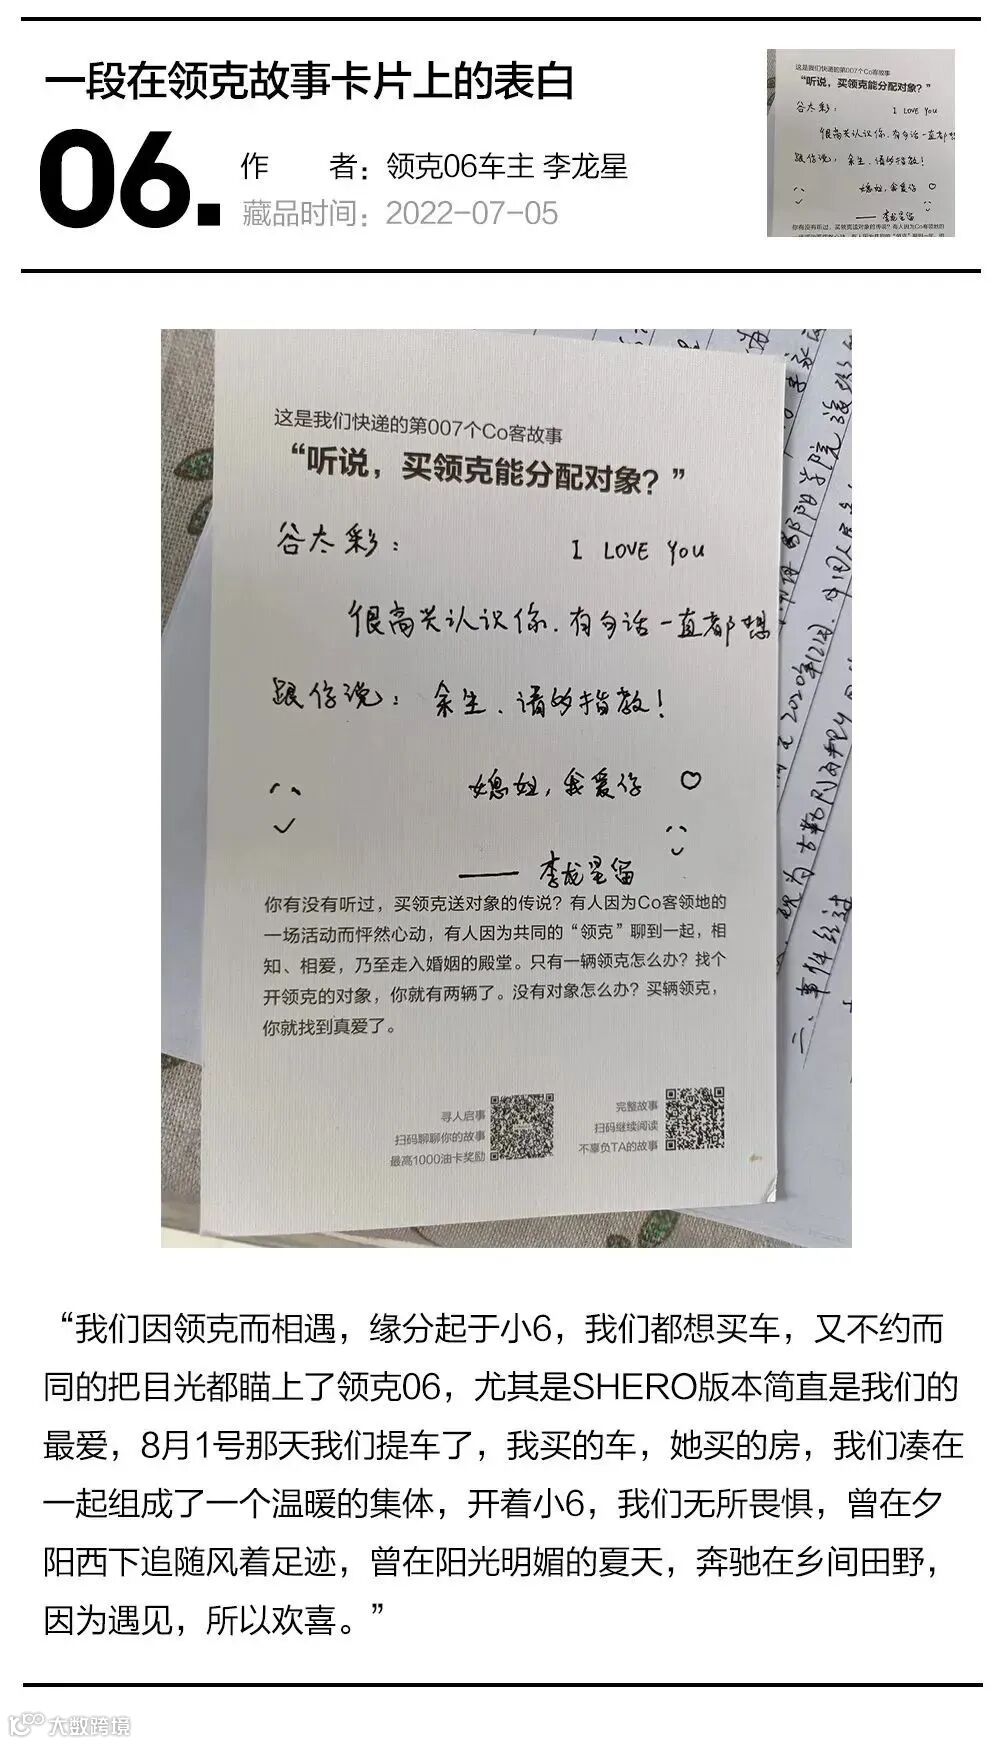 一段在领克故事卡片上的表白
06.
作 者：领克06车主 李龙星
藏品时间：2022-07-05
这是我们快递的第007个Co客故事
“听说，买领克能分配对象？”
谷太彩： I LOVE You
很高兴认识你.有句话一直都想
跟你说：余生、请多指教！
媳姐，我爱你
—— 李龙星留
这是我们快递的第007个Co客故事
“听说，买领克能分配对象？”
谷太彩： I LOVE You
很高兴认识你.有句话一直都想
跟你说：余生、请多指教！
媳姐，我爱你
—— 李龙星留
你有没有听过，买领克送对象的传说？有人因为Co客领地的
一场活动而怦然心动，有人因为共同的“领克”聊到一起，相
知、相爱，乃至走入婚姻的殿堂。只有一辆领克怎么办？找个
开领克的对象，你就有两辆了。没有对象怎么办？买辆领克，
你就找到真爱了。
寻人启事
扫码聊聊你的故事
最高1000油卡奖励
完整故事
扫码继续阅读
不辜负TA的故事
二、事件经过
“我们因领克而相遇，缘分起于小6，我们都想买车，又不约而
同的把目光都瞄上了领克06，尤其是SHERO版本简直是我们的
最爱，8月1号那天我们提车了，我买的车，她买的房，我们凑在
一起组成了一个温暖的集体，开着小6，我们无所畏惧，曾在夕
阳西下追随风着足迹，曾在阳光明媚的夏天，奔驰在乡间田野，
因为遇见，所以欢喜。”
大数跨境